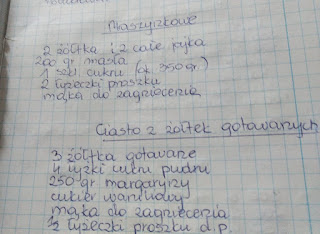 Maszynkowe
2 żółtka i 2 całe jajka
200 gr masła
1 szkl. cukru (ok. 350 gr.)
2 łyżeczki proszku
mąka do zagniecenia
Ciasto z żółtek gotowanych
3 żółtka gotowane
4 łyżki cukru pudru
250 gr margaryny
cukier waniliowy
mąka do zagniecenia
2 łyżeczki proszku d.p.